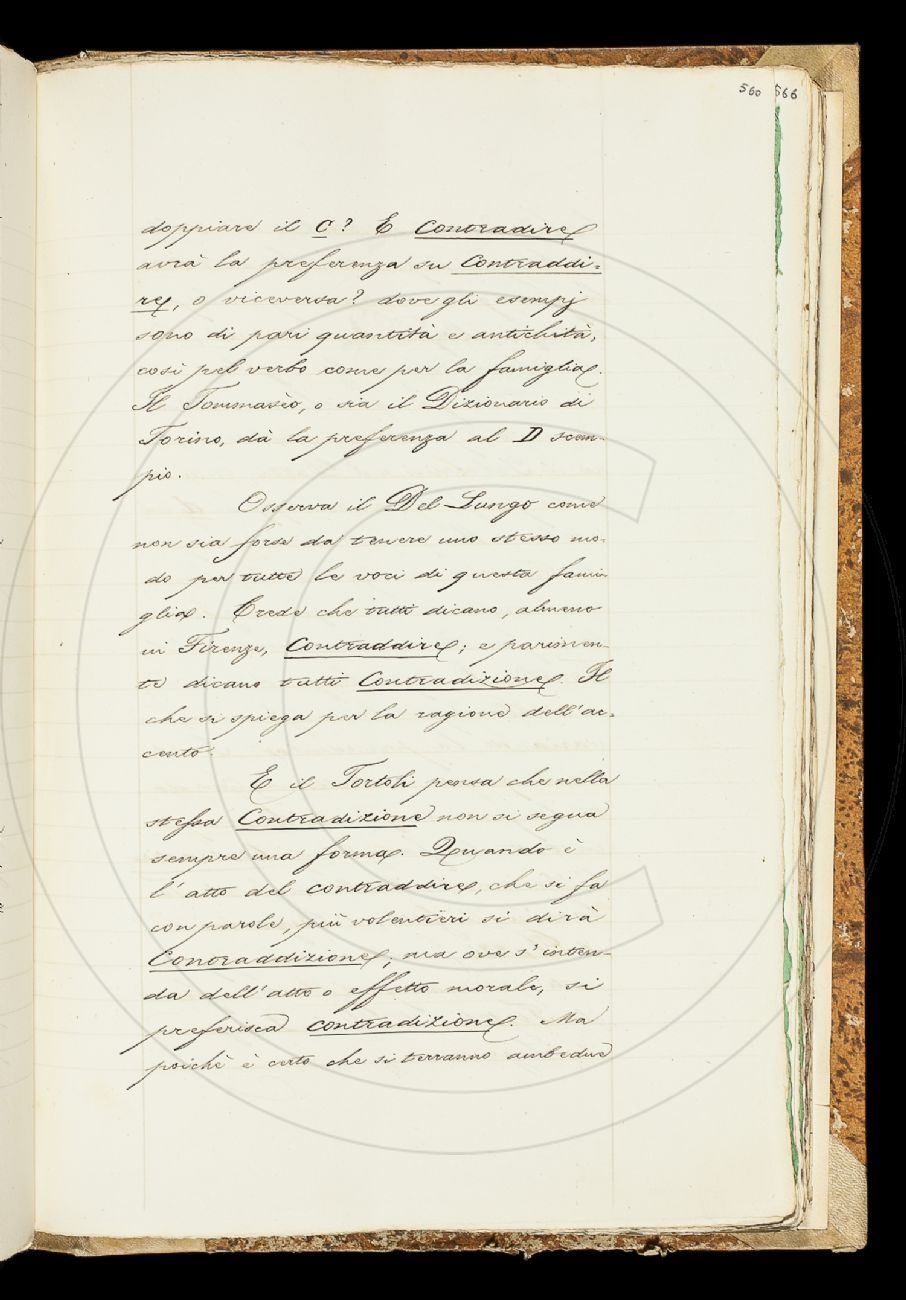 560 566
doppiare il C? E Contradire
avrà la preferenza su Contraddi=
re, o viceversa? dove gli esempj
sono di pari quantità e antichità,
così pel verbo come per la famiglia.
Il Tommasèo, o sia il Dizionario di
Torino, dà la preferenza al D scem-
pio.
Osserva il Del Lungo come
non sia forse da tenere uno stesso mo-
do per tutte le voci di questa fami-
glia. Crede che tutti dicano, almeno
in Firenze, Contraddire; e parimen-
te dicano tutti Contradizione. Il
che si spiega per la ragione dell'ac-
cento.
E il Tortoli pensa che nella
stessa Contradizione non si segua
sempre una forma. Quando è
l'atto del contraddire, che si fa
con parole, più volentieri si dirà
Contraddizione; ma ove s'inten-
da dell'atto o effetto morale, si
preferisca contradizione. Ma
poichè è certo che si terranno ambedue